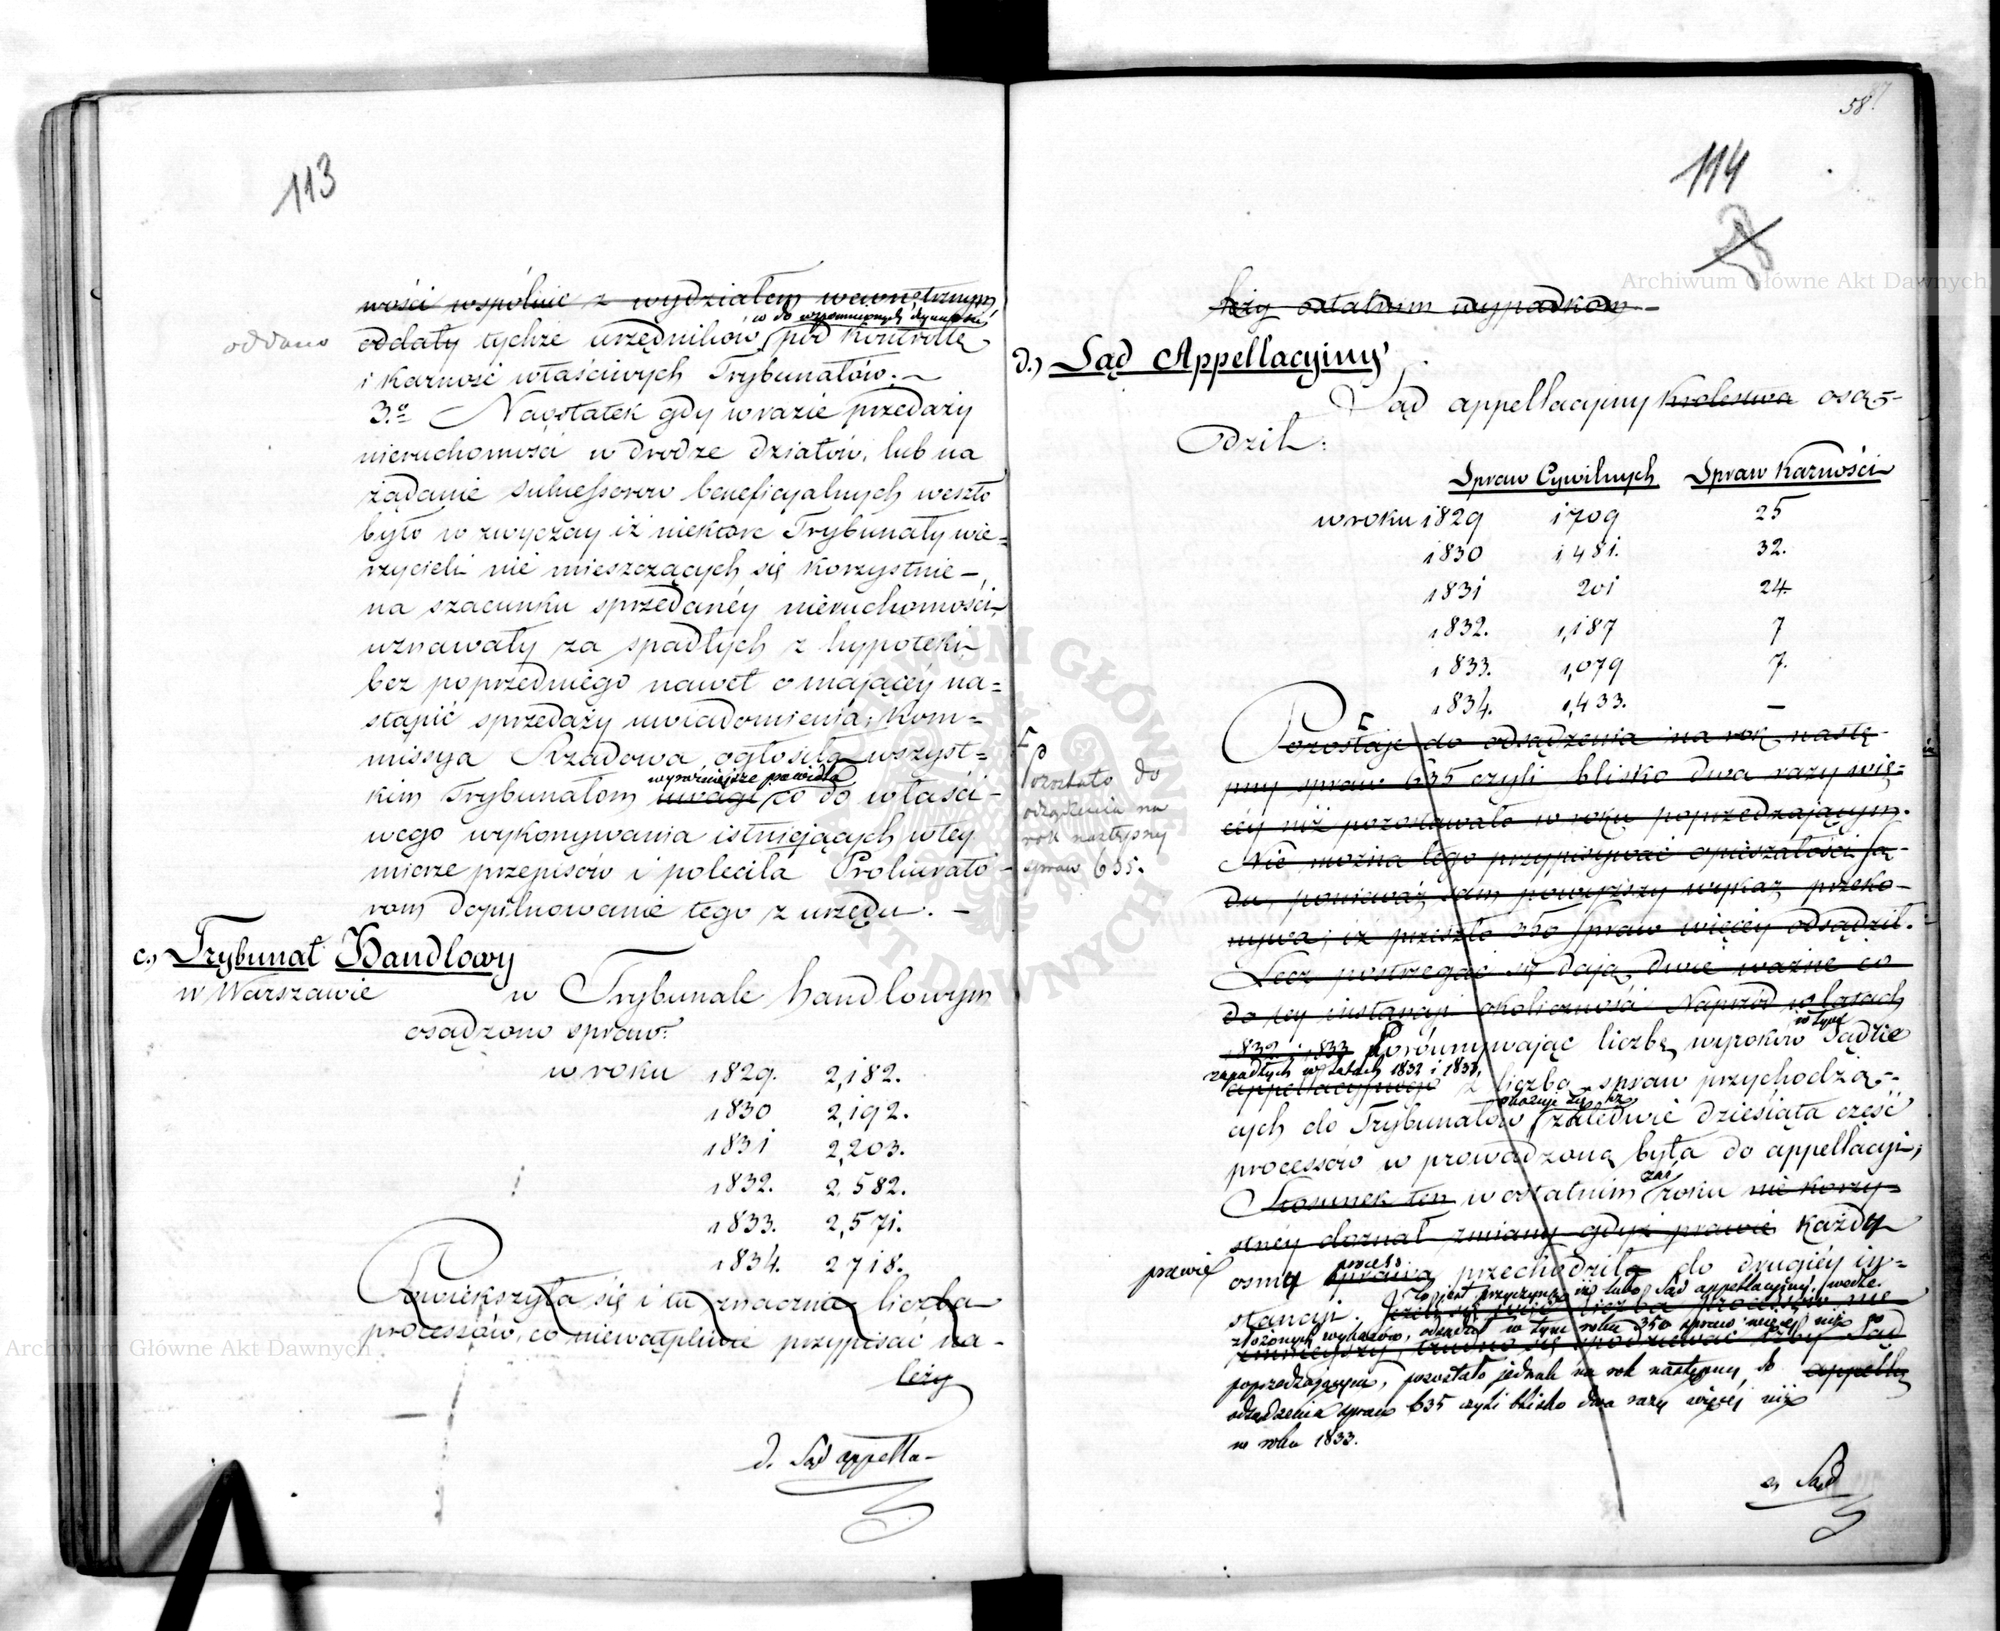 113
wości wspólnie z wydziałem wewnętrznym
w do wspomnionych czynności
oddano
oddały tychże urzędników pod kontrollę
i karność właściwych Trybunałów. –
3.o Naostatek gdy w razie przedaży
nieruchomości w drodze działów, lub na
żądanie sukcessorów beneficyalnych weszło
było w zwyczay iż niektóre Trybunały wie=
rzycieli nie mieszczących się korzystnie –
na szacunku sprzedanéy nieruchomości
uznawały za spadłych z hypoteki
bez poprzedniego nawet o maiącéy na=
stąpić sprzedaży uwiadomienia, Kom=
missya Rządowa ogłosiła wszyst=
wyraźniejsze prawidła
kim Trybunałom uwagi co do właści=
wego wykonywania istniejących w téy
mierze przepisów i poleciła Prokurato=
rom dopilnowanie tego z urzędu. –
c.) Trybunał Handlowy
w Warszawie
w Trybunale handlowym
osądzono spraw:
w roku 1829. 2,182.
1830 2,192.
1831 2,203.
1832. 2,582.
1833. 2,571.
1834. 2718.
Powiększyła się i tu znacznie liczba
processów, co niewątpliwie przypisać na-
leży
d. Sąd appella-
58.
114
leży ostatnim wypadkom –
d.) Sąd Appellacyjny
Sąd appellacyjny Królestwa osą=
dził:
Spraw Cywilnych Spraw Karności
w roku 1829 1709 25
1830 1481. 32.
1831 201 24
1832. 1,187 7
1833. 1,079 7.
1834. 1,433. –
Pozostało do
odsądzenia na
rok następny
spraw 635.
Pozostaje do odsądzenia na rok nastę=
pny spraw 635 czyli blisko dwa razy wię=
céy niż pozostawało w roku poprzedzającym.
Nie można tego przypisywać opieszałości Są=
du, ponieważ sam powyższy wykaz przeko=
nywa, iż przeszło 350 spraw więcéy odsądził.
Lecz postrzegać się dają dwie ważne co
do téy instancyi okoliczności. Naprzód w latach
w tym
1832 i 1833 Porównywając liczbę wyroków Sądzie
zapadłych w latach 1832 i 1833,
appellacyjnego z liczbą spraw przychodzą=
okazuje się, iż
cych do Trybunałów zaledwie dziesiąta część
processów wprowadzoną była do appellacyi,
zaś
Stosunek ten w ostatnim roku nie korzy=
stnéy doznał zmiany gdyż prawie każdy
prawie
process
ósmy sprawa przechodziła do drugiéy in=
stancyi. To jest przyczyną iż lubo Sąd appellacyjny, wedle
złożonych wykazów, odsądził w tym roku 350 spraw więcej niż w
poprzedzającym, pozostało jednak na rok następny do appella
odsądzenia spraw 635 czyli blisko dwa razy więcej niż
w roku 1833.
e, Sąd
Archiwum Główne Akt Dawnych
Archiwum Główne Akt Dawnych
ARCHIWUM GŁÓWNE AKT DAWNYCH